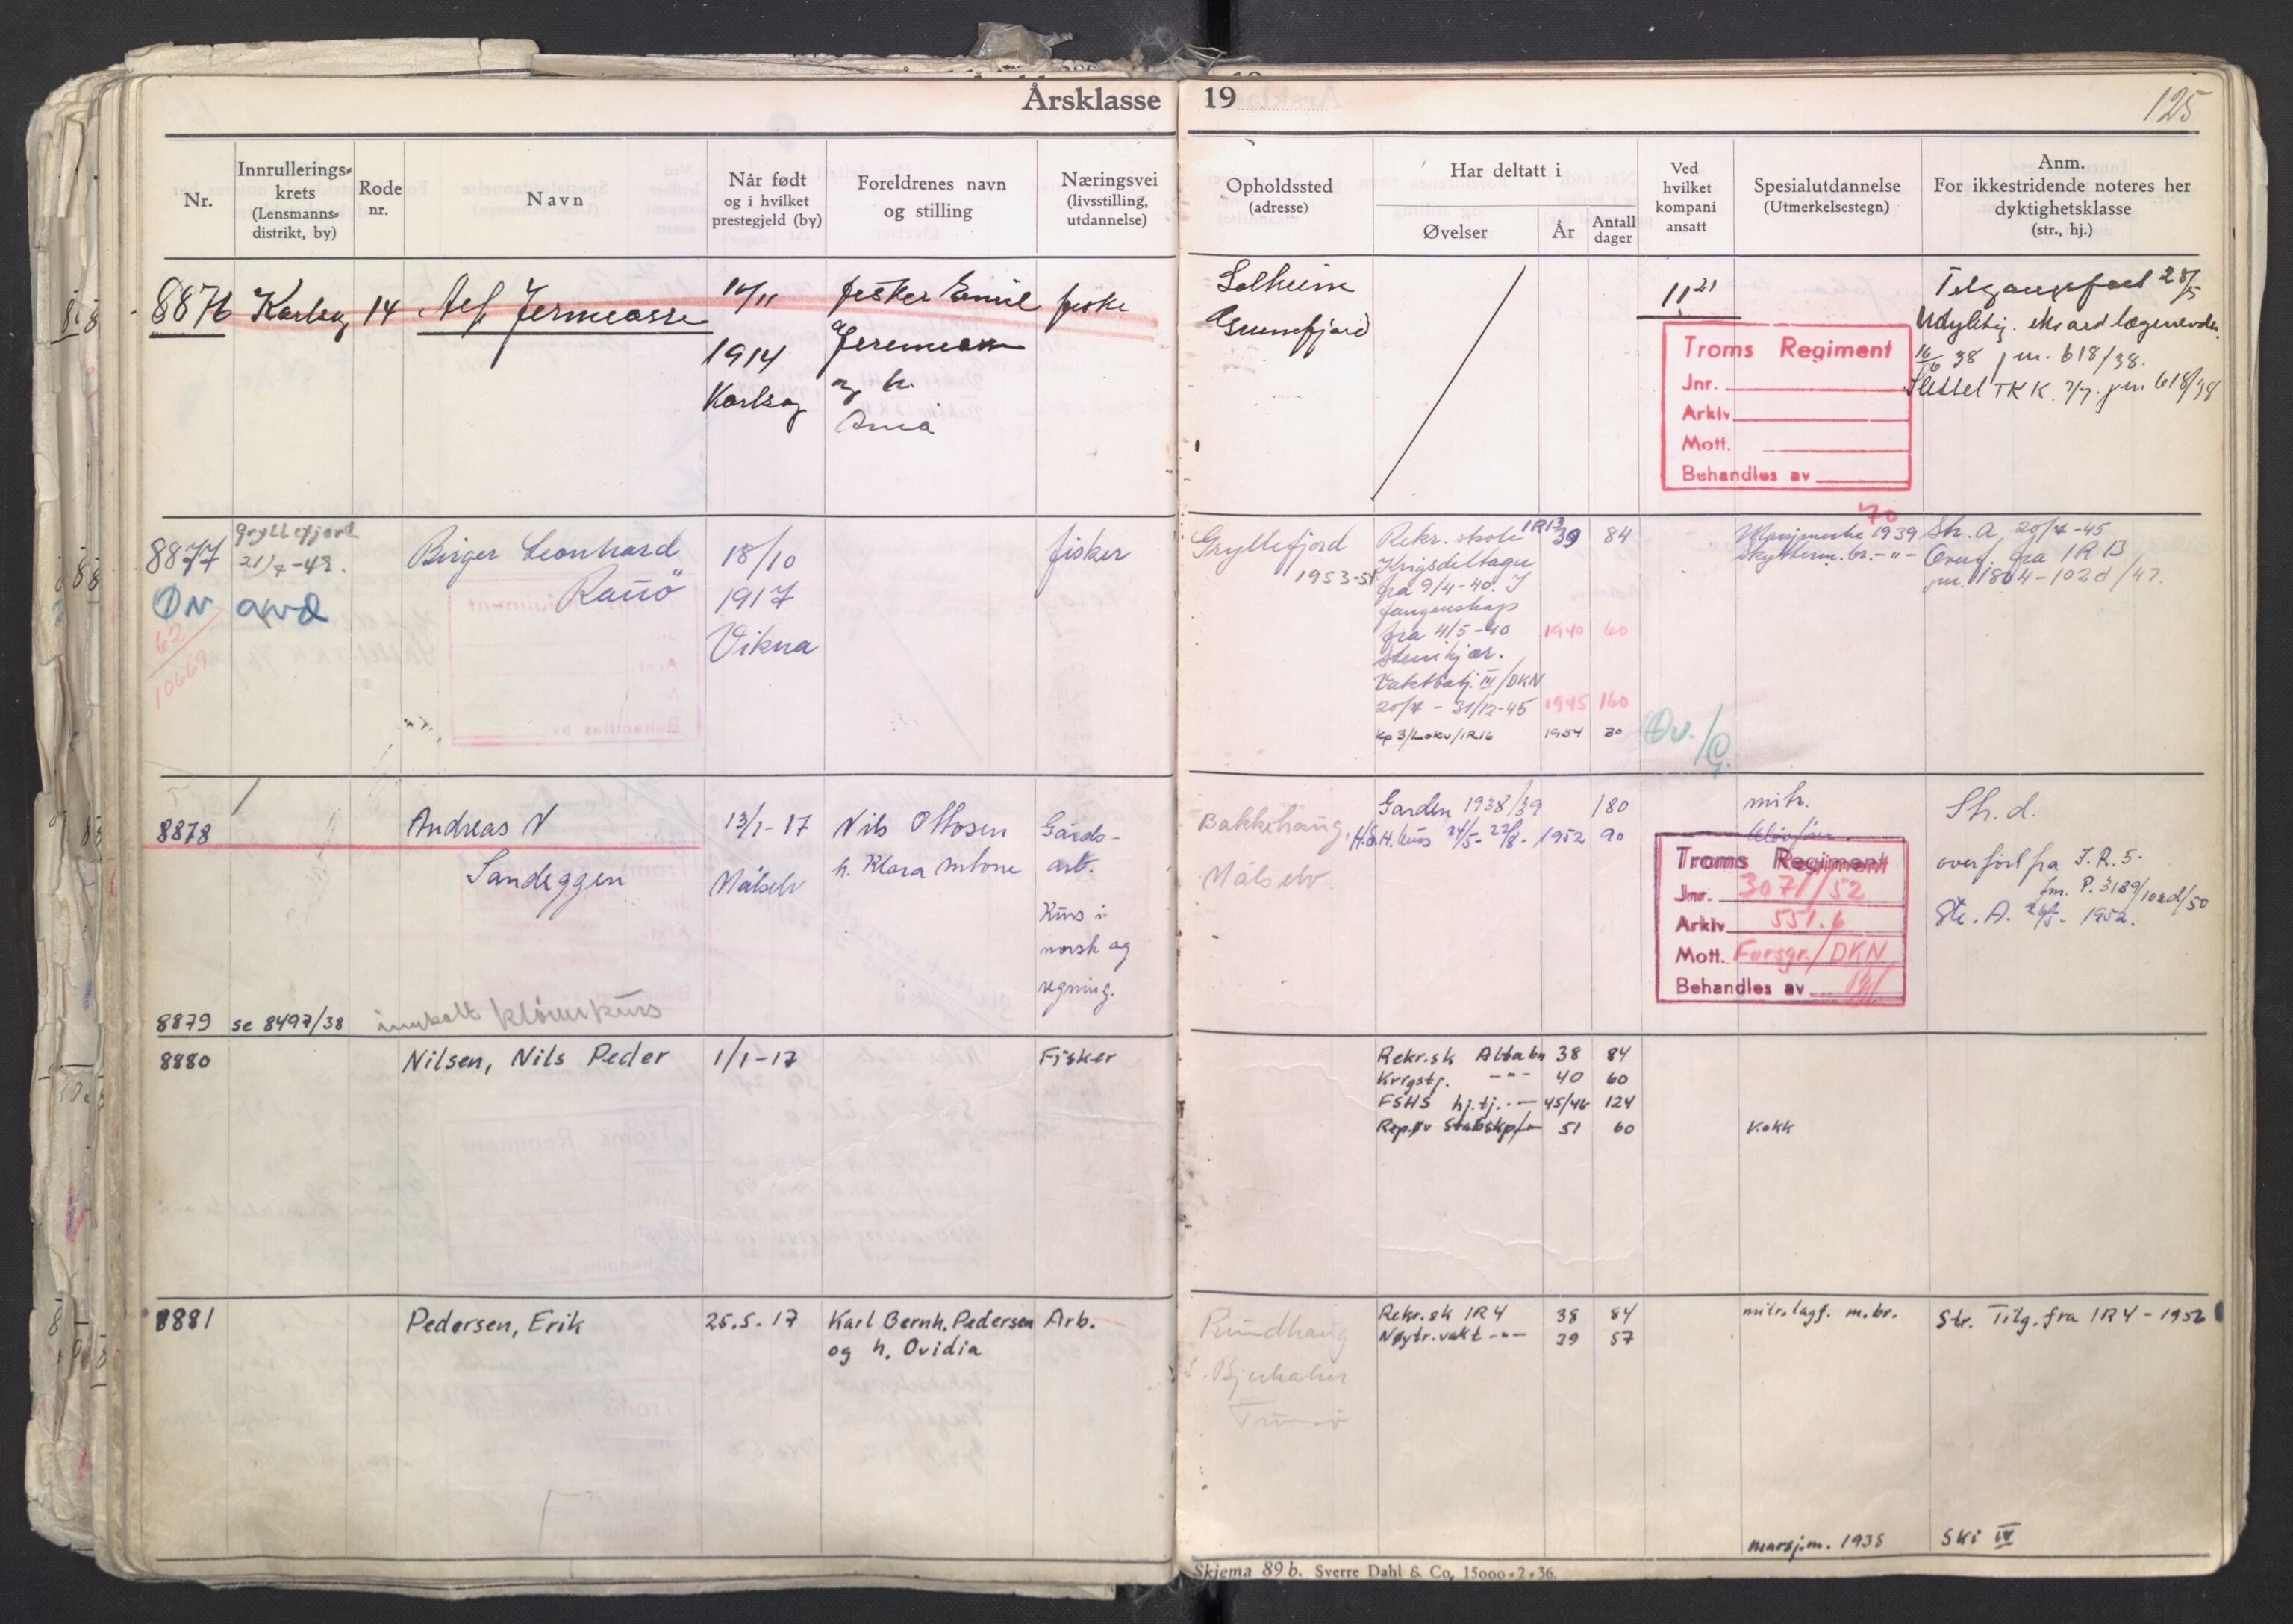 Årsklasse 19
125
Nr.
Innrullerings-
krets
(Lensmanns-
distrikt, by)
Rode
nr.
Navn
Når født
og i hvilket
prestegjeld (by)
Foreldrenes navn
og stilling
Næringsvei
(livsstilling,
utdannelse)
Opholdssted
(adresse)
Har deltatt i
Øvelser
År
Antall
dager
Ved
hvilket
kompani
ansatt
Spesialutdannelse
(Utmerkelsestegn)
Anm.
For ikkestridende noteres her
dyktighetsklasse
(str., hj.)
8876 Karlsøy 14
1914
Karlsøy
fisker Emil
og h.
fiske
Solheim
Grunnfjord
11
Troms Regiment
Jnr.
Arkiv
Mott.
Behandles av
16/6 38 jnr. 618/38.
Slettet TKK. 7/7. jnr 618/38
8877
Gryllefjord
21/7-48.
62
10669
Birger Leonhard
Ranö
18/10
1917
Vikna
fisker
Gryllefjord
1953-54
Rekr. skole IR13 39 84
Krigsdeltager
fra 9/4-40. I
fangenskap
fra 4/5-40 1940 60
Steinkjær.
Vaktbatj. III/DKN
20/7 - 31/12-45 1945 160
Kp 3/Lokv/IR16 1954 30
Øv./G.
70
Marsjmerke 1939
Skytterm. br. -"-
Str. A, 20/7-45
Overf. fra IR 13
jnr. 1804-102d/47.
8878
Andreas N
Sandeggen
13/1-17
Målselv
Nils Ottosen
h. Klara Antone
Gårds-
arb.
Kurs i
norsk og
regning.
Bakkehaug,
Målselv.
Garden 1938/39 180
24/5- 22/8- 1952 90
mitr.
Troms Regiment
Jnr. 3071/52
Arkiv 551.6
Mott. Forsgr./DKN
Behandles av
Str. d.
overført fra I.R.5-
jnr. P. 3189/102d/50
Str. A. 26/5- 1952.
8879 se 8497/38 innkalt kløverkurs
8880
Nilsen, Nils Peder
1/1-17
Fisker
Rekr.sk Altabn 38 84
Krigstj. -"- 40 60
FSHS hj.tj. -"- 45/46 124
Rep.øv Stabskp/-"- 51 60
Kokk
8881
Pedersen, Erik
25.5.17
Karl Bernh. Pedersen
og h. Ovidia
Arb.
Rundhaug
Tromsø
Rekr.sk IR4 38 84
Nøytr.vakt -"- 39 57
mitr.lagf. m.br.
Str. Tilg. fra IR4 - 1952
marsj.m. 1938
Ski IV
Skjema 89 b. Sverre Dahl & Co, 15000 - 2 - 36.